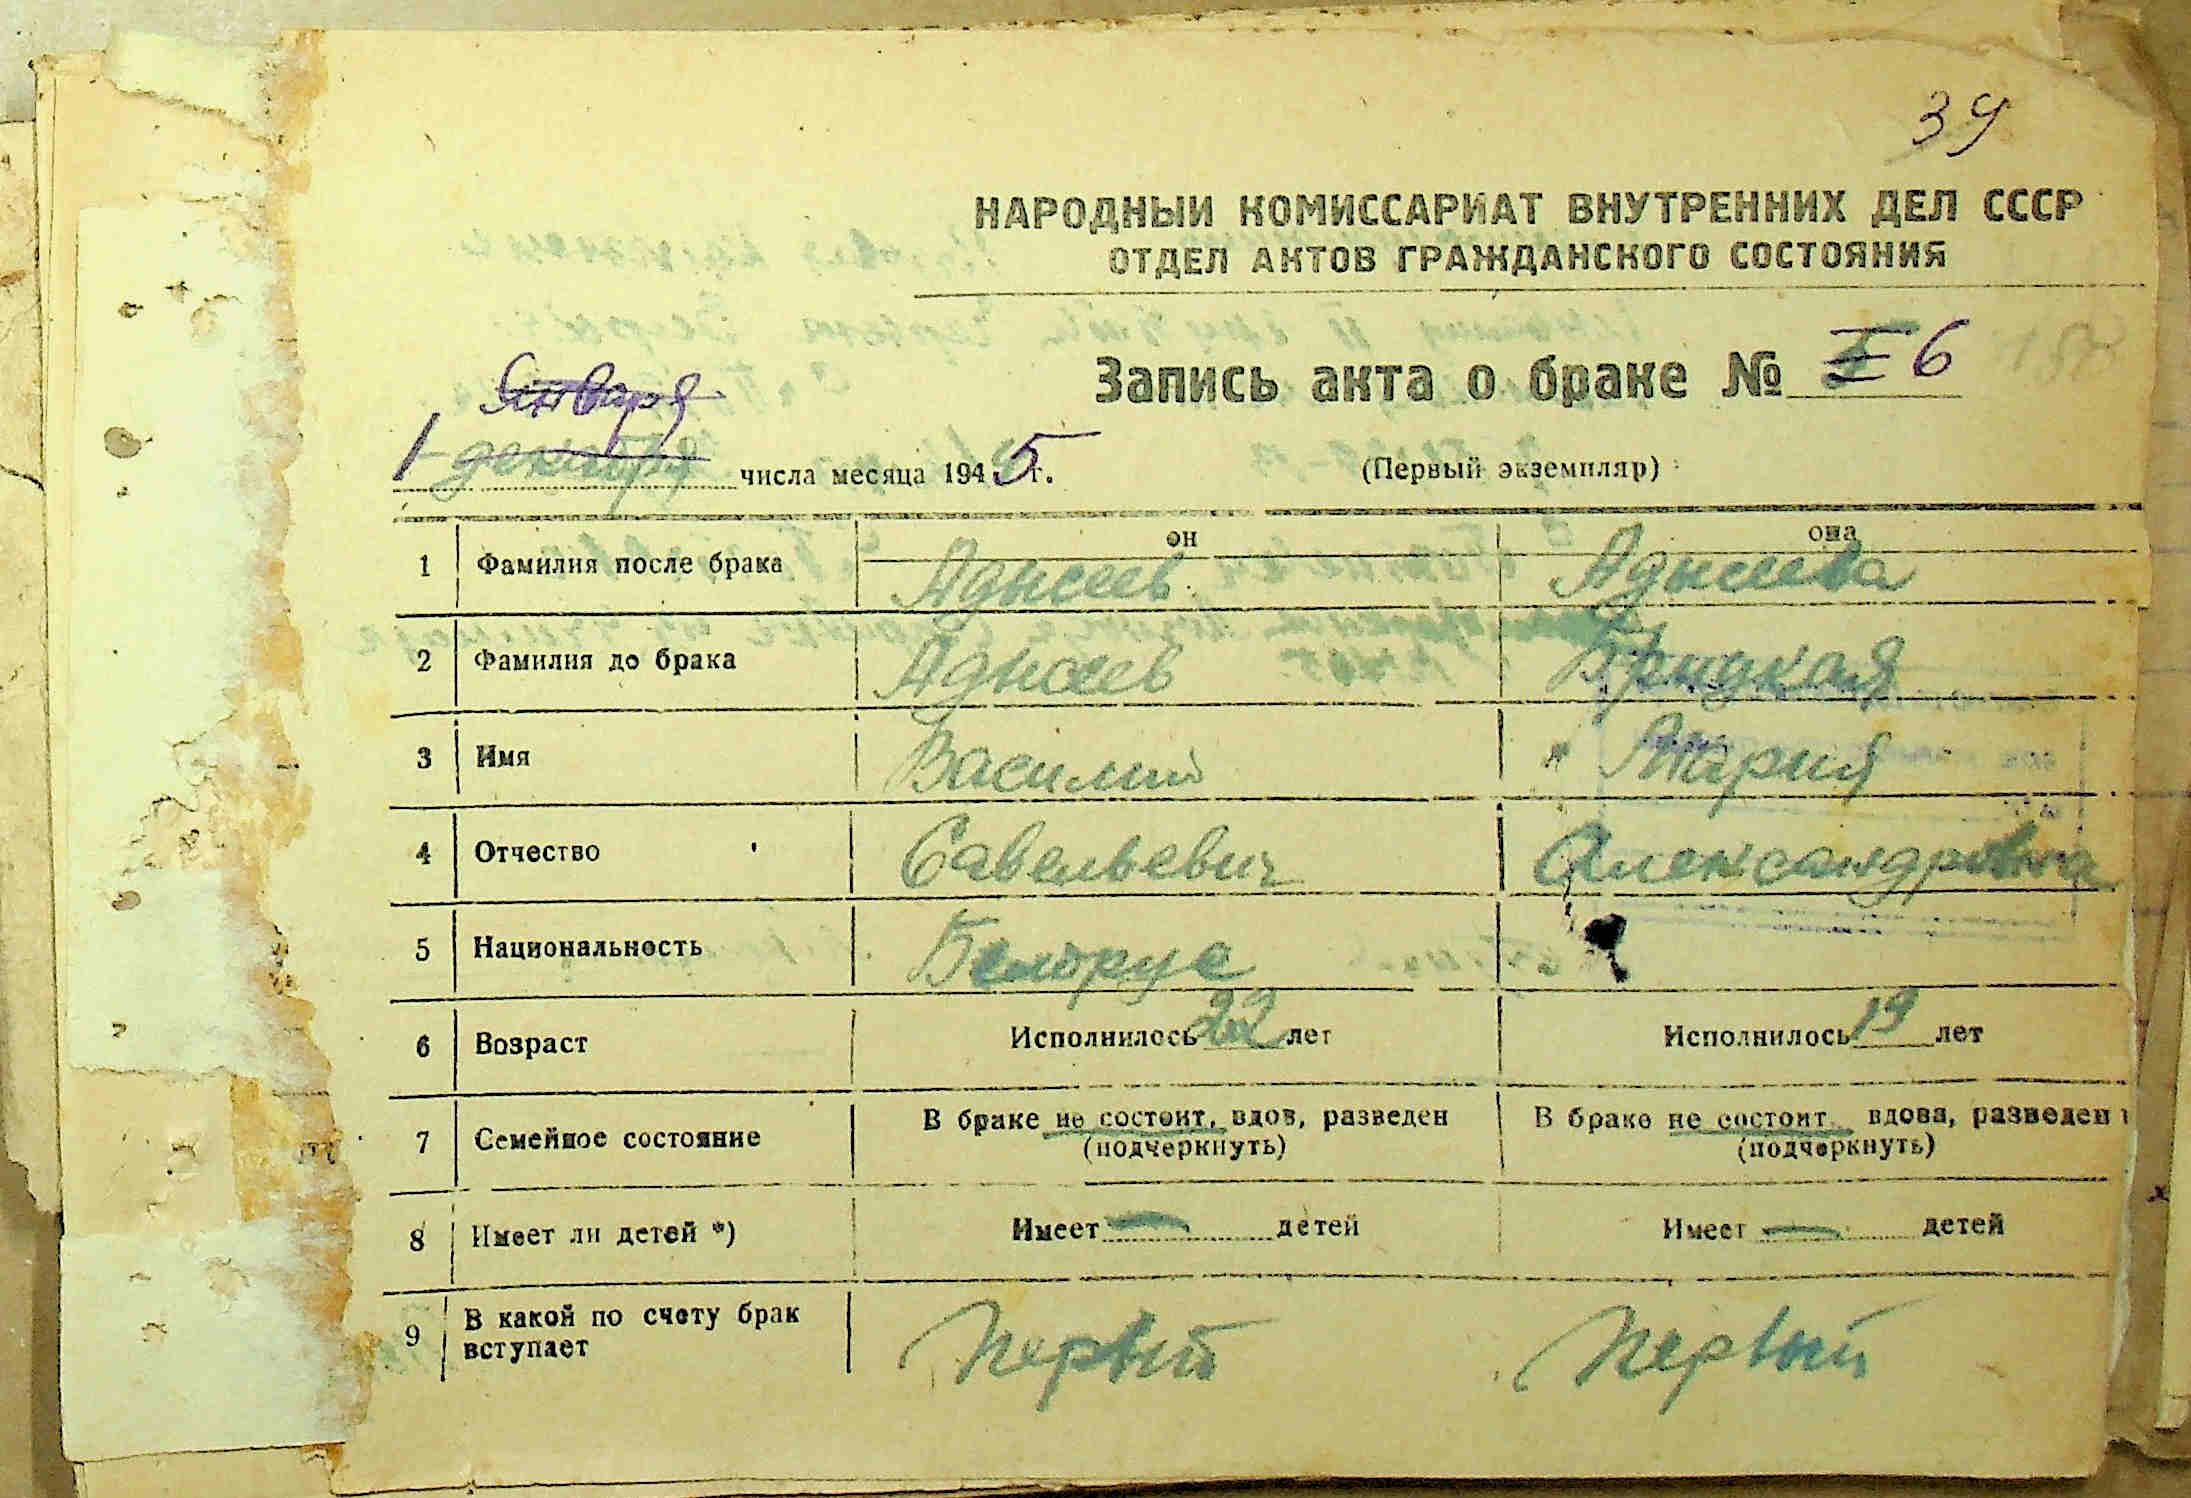 39
НАРОДНЫЙ КОМИССАРИАТ ВНУТРЕННИХ ДЕЛ СССР
ОТДЕЛ АКТОВ ГРАЖДАНСКОГО СОСТОЯНИЯ
Запись акта о браке № 6
января
1 декабря числа месяца 1945 г. (Первый экземпляр)
он она
1 Фамилия после брака
2 Фамилия до брака
3 Имя Василий Мария
4 Отчество Савельевич Александровна
5 Национальность Белорус
6 Возраст Исполнилось 22 лет Исполнилось 19 лет
7 Семейное состояние В браке не состоит, вдов, разведен В браке не состоит, вдова, разведен
(подчеркнуть) (подчеркнуть)
8 Имеет ли детей *) Имеет — детей Имеет — детей
9 В какой по счету брак вступает Первый Первый